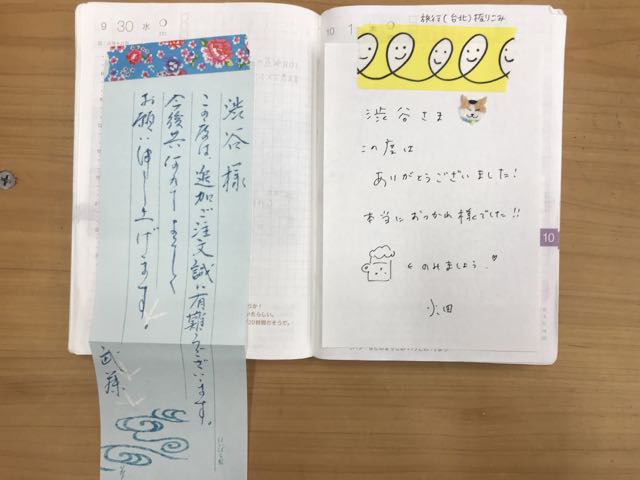 9 30 水
渋谷様
この度は、追加ご注文誠に有難うございます。
今後共何卒よろしく
お願い申し上げます。
武藤
10 1
旅行(台北)振りこみ
渋谷さま
この度は
ありがとうございました!
本当におつかれ様でした!!
←のみましょう
10